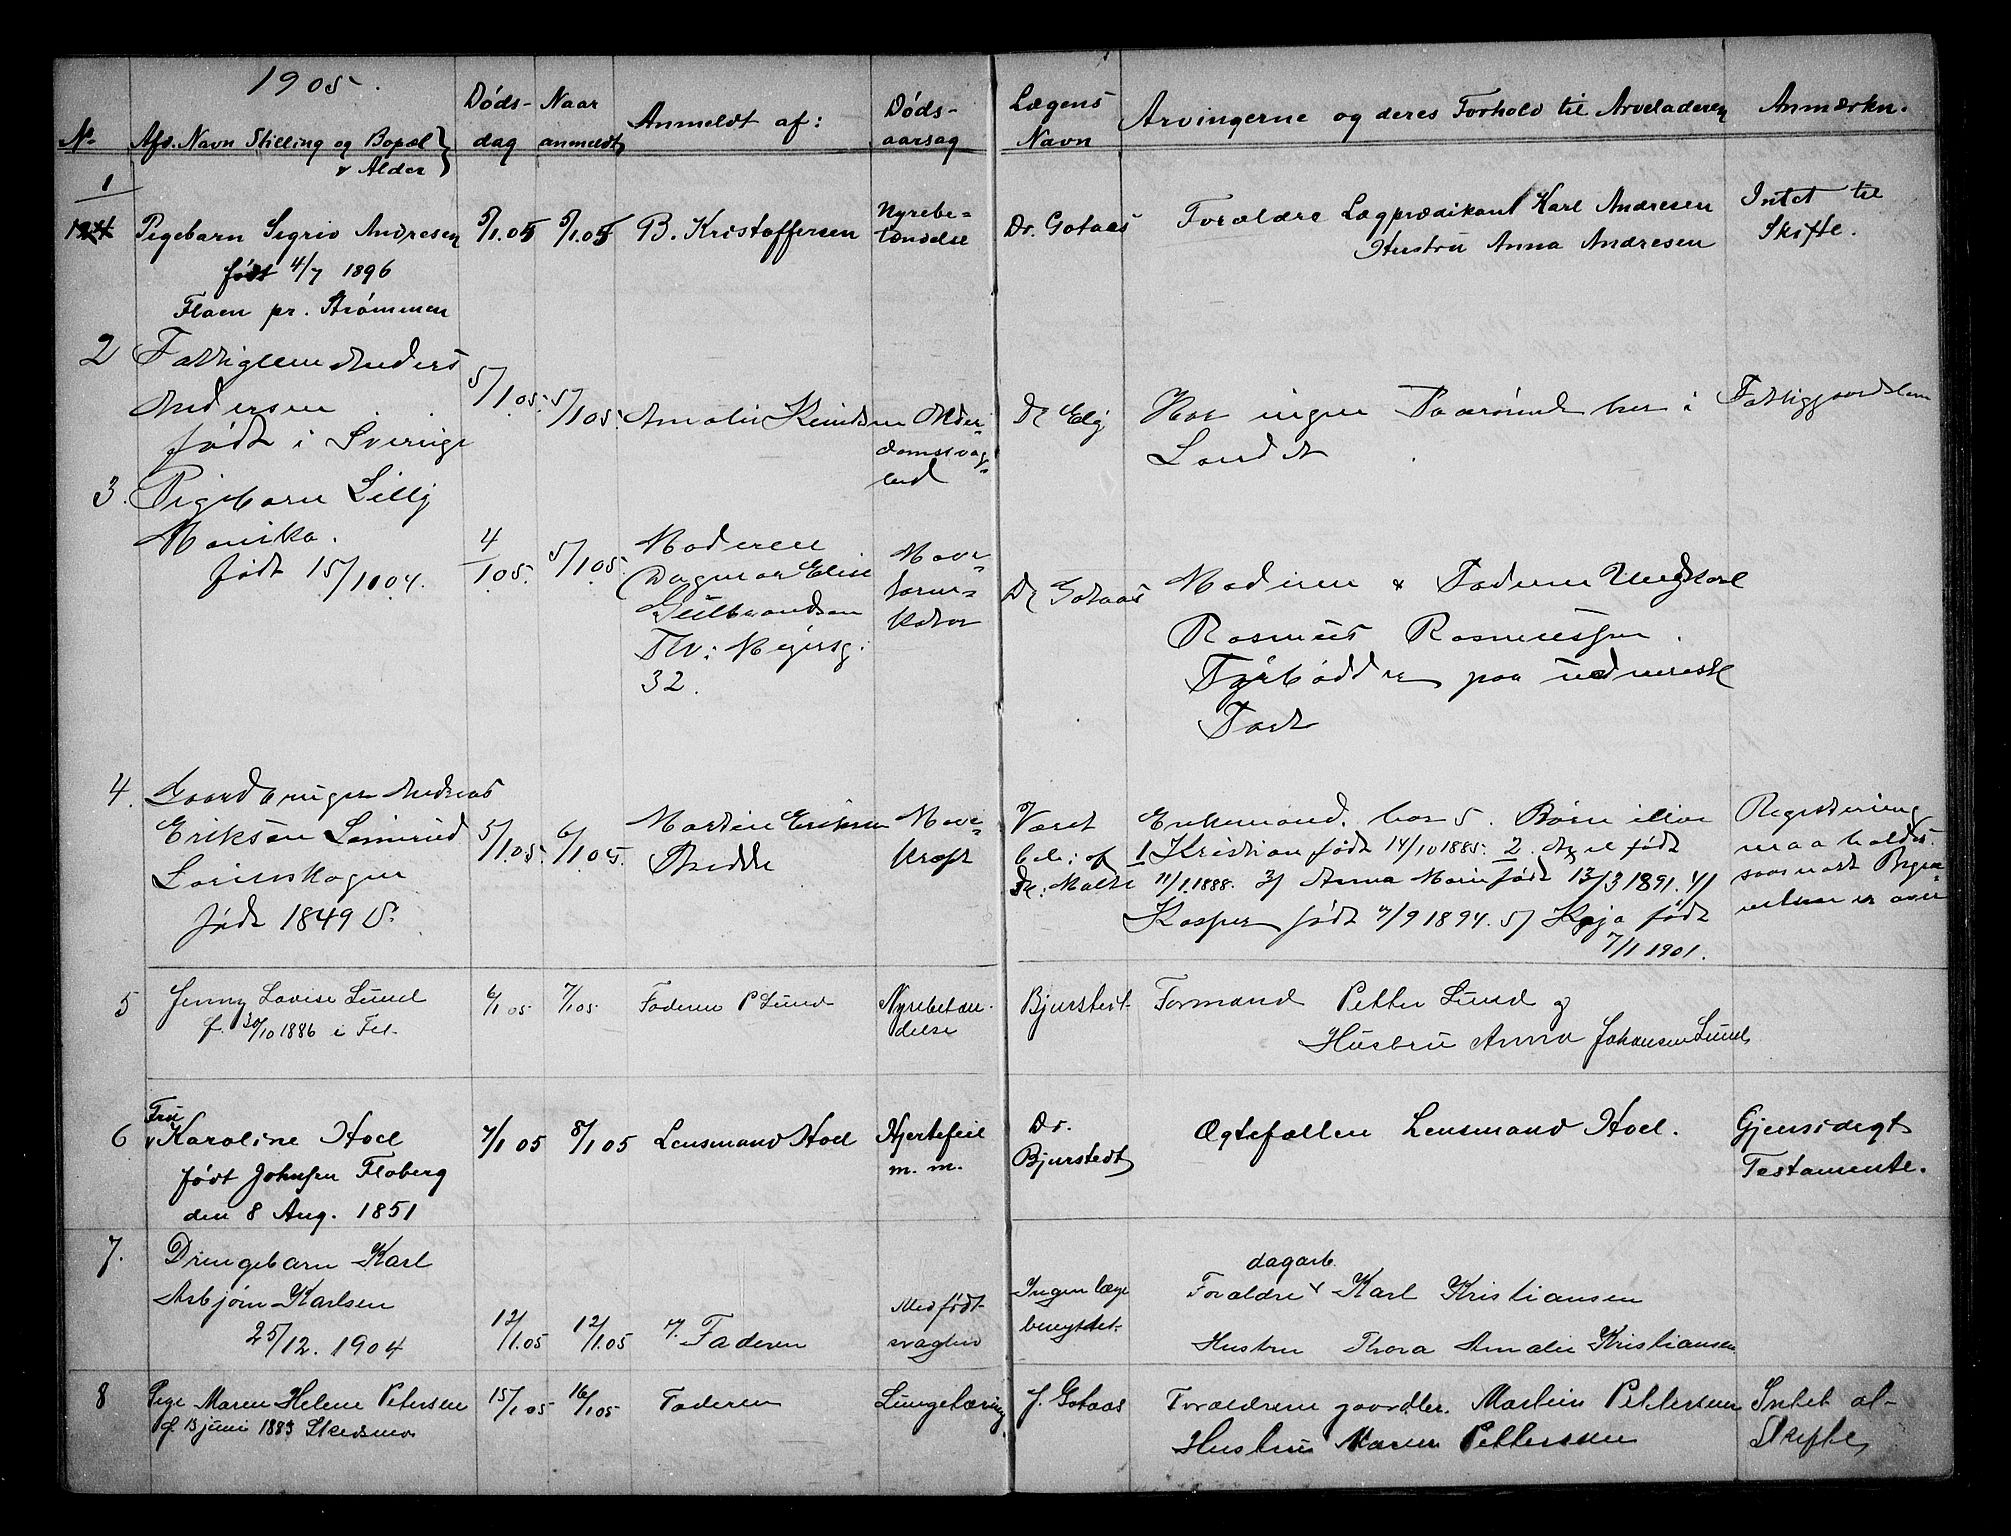 1905.
No
Afd. Navn Stilling og Bopæl
& Alder
Døds-
dag
Naar
anmeldt
Anmeldt af:
Døds-
aarsag
Lægens
Navn
Arvingerne og deres Forhold til Arveladeren
Anmærkn.
1
Pigebarn Sigrid Andresen
født 4/7 1896
Flaen pr. Strømmen
5/1.05
5/1.05
B. Kristoffersen
Nyrebe-
tændelse
Dr. Gotaas
Forældre Lægprædikant Karl Andresen
Hustru Anna Andresen
Intet til
Skifte.
2
Fattiglem Anders
Andersen
født i Sverige
5/1.05.
5/1.05.
Amalie Knudsen
Alder-
domssvag-
hed
Dr Elg
Har ingen Paarørende her i
Landet
Fattiggaardslem
3.
Pigebarn Lilly
Monika.
født 15/11 04.
4/1.05.
5/1.05.
Moderen
Dagmar Elise
Gulbrandsen
Thv. Meyersg.
32.
Mave-
tarm-
katar
Dr Gotaas
Moderen & Faderen Ungkarl
Rasmus Rasmussen.
Fyrbødder paa udenrigsk
Fart
4.
Gaardbruger Andreas
Eriksen
Lørenskogen
født 1849
5/1.05.
6/1.05.
Martin Eriksen
Bredde
Mave-
kræft
Været
beh: af
Dr. Malthe
Enkemand. har 5. Børn ilive
1 Kristian født 14/10 1885. 2. Aksel født
11/1.1888. 3/ Anna Marie født 13/3 1891. 4/
Kasper født 7/9 1894. 5/ Kaja født
7/1 1901.
Registrering
maa holdes
saasnart Begra-
velsen er over
5
Jenny Lovise Lund
f. 30/10 1886 i Fet
6/1 05
7/1 05
Faderen P Lund
Nyrebetæn-
delse
Bjurstedt
Formand Petter Lund og
Hustru Anna Johansen Lund
6
Fru
Karoline Hoel
født Johnsen Floberg
den 8 Aug. 1851
7/1 05
8/1 05
Lensmand Hoel
Hjertefeil
m. m.
Dr.
Bjurstedt
Ægtefællen Lensmand Hoel.
Gjensidigt
Testamente.
7.
Drengebarn Karl
Asbjørn Karlsen
25/12. 1904
12/1.05
12/1.05
Faderen
Medfødt
svaghed
Ingen læge
benyttet.
dagarb.
Forældre v Karl Kristiansen
Hustru Thora Amalie Kristiansen
8
Pige Maren Helene Petersen
f. 13 juni 1885 Skedsmo
15/1 05
16/1 05
Faderen
Lungetæring
J. Gotaas
Forældrene gaardbr. Martin Pettersen
Hustru Maren Pettersen
Intet at
Skifte